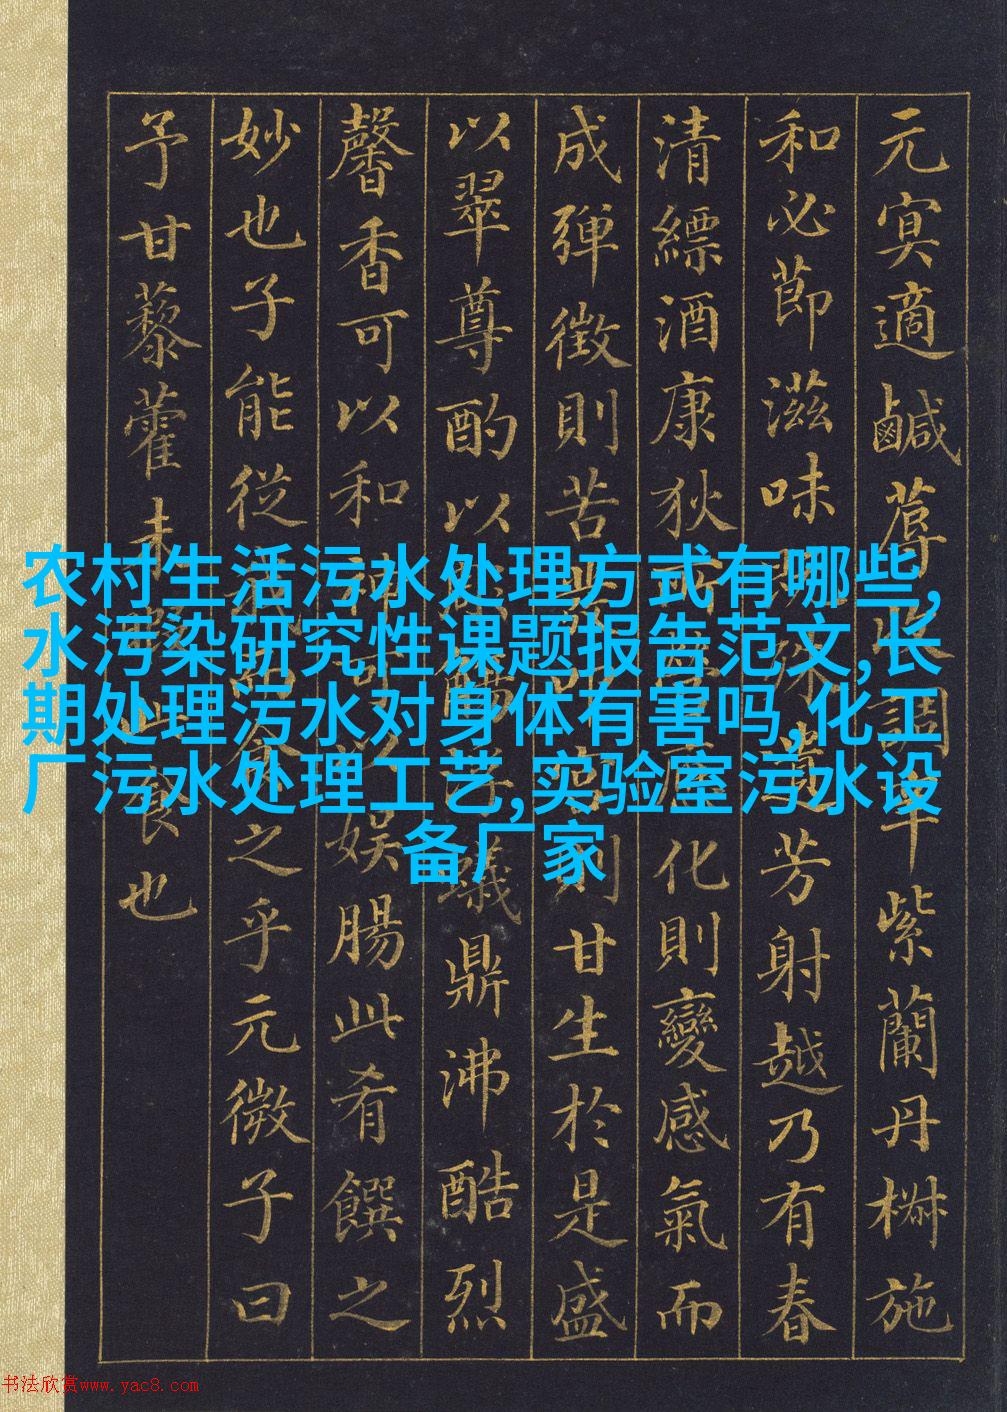 元冥適鹹蓐收調辛紫蘭丹椒施
和必節滋味既殊遺芳射越乃有春
清縹酒康狄所營應化則變感氣而
成彈徵則苦發叩宮則甘生於是盛
以翠尊酌以彫觴浮蟻鼎沸酷烈
馨香可以和神可以娛腸此肴饌之
妙也子能從我而食之乎元微子曰
予甘藜藿未暇此食也
农村生活污水处理方式有哪些,
水污染研究性课题报告范文,长
期处理污水对身体有害吗,化工
厂污水处理工艺,实验室污水设
备厂家
书法欣赏www.yac8.com